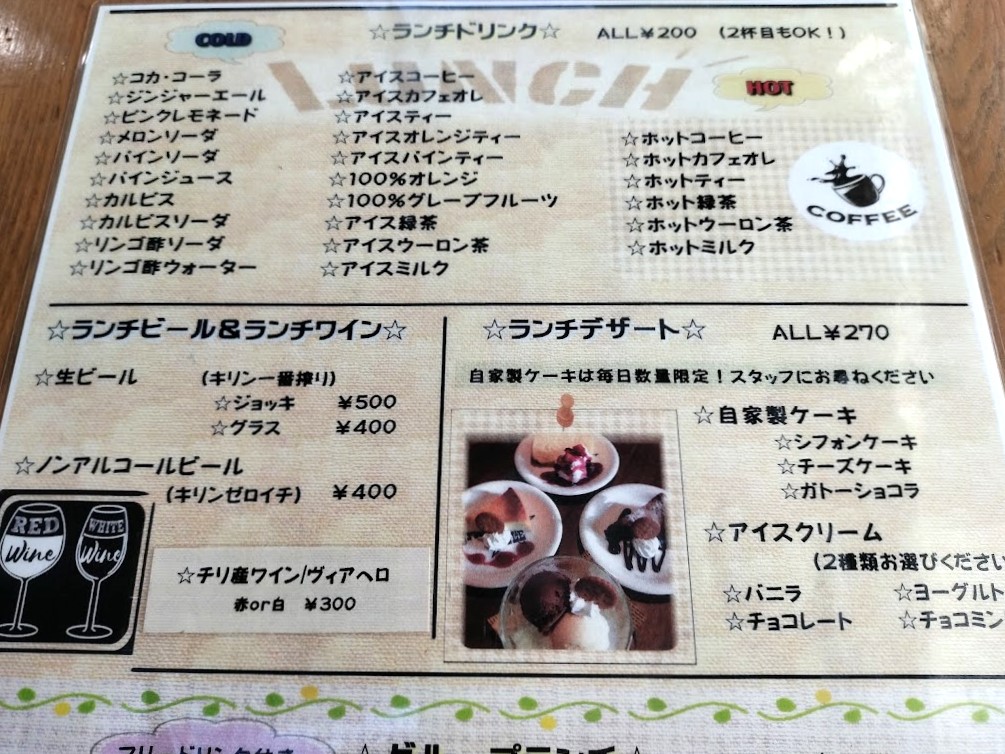 COLD
☆ランチドリンク☆ ALL¥200 (2杯目もOK!)
LUNCH
HOT
☆コカ・コーラ
☆ジンジャーエール
☆ピンクレモネード
☆メロンソーダ
☆パインソーダ
☆パインジュース
☆カルピス
☆カルピスソーダ
☆リンゴ酢ソーダ
☆リンゴ酢ウォーター
☆アイスコーヒー
☆アイスカフェオレ
☆アイスティー
☆アイスオレンジティー
☆アイスパインティー
☆100%オレンジ
☆100%グレープフルーツ
☆アイス緑茶
☆アイスウーロン茶
☆アイスミルク
☆ホットコーヒー
☆ホットカフェオレ
☆ホットティー
☆ホット緑茶
☆ホットウーロン茶
☆ホットミルク
COFFEE
☆ランチビール&ランチワイン☆
☆生ビール (キリン一番搾り)
☆ジョッキ ¥500
☆グラス ¥400
☆ノンアルコールビール
(キリンゼロイチ) ¥400
RED Wine
WHITE Wine
☆チリ産ワイン/ヴィアヘロ
赤or白 ¥300
☆ランチデザート☆ ALL¥270
自家製ケーキは毎日数量限定!スタッフにお尋ねください
☆自家製ケーキ
☆シフォンケーキ
☆チーズケーキ
☆ガトーショコラ
☆アイスクリーム
(2種類お選びください
☆バニラ ☆ヨーグルト
☆チョコレート ☆チョコミン